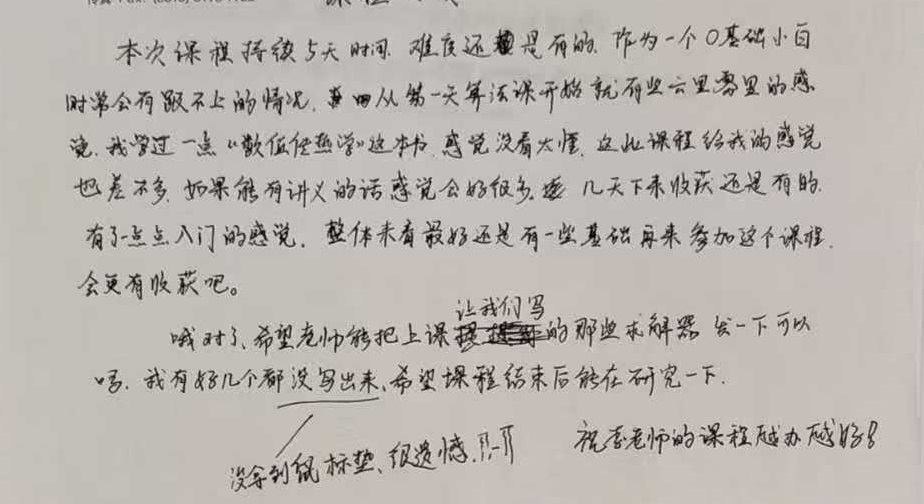 本次课程持续5天时间 难度还是有的 作为一个0基础小白
时常会有跟不上的情况, 从第一天算法课开始就有些云里雾里的感
觉, 我学过一点《数值传热学》这本书, 感觉没看太懂, 这次课程给我的感觉
也差不多, 如果能有讲义的话感觉会好很多, 几天下来收获还是有的.
有了一点点入门的感觉, 整体来看最好还是有一些基础再来参加这个课程,
会更有收获吧。
让我们写
哦对了、希望老师能把上课的那些求解器 发一下可以
吗, 我有好几个都没写出来, 希望课程结束后能在研究一下.
祝李老师的课程越办越好!
没拿到鼠标垫、很遗憾.